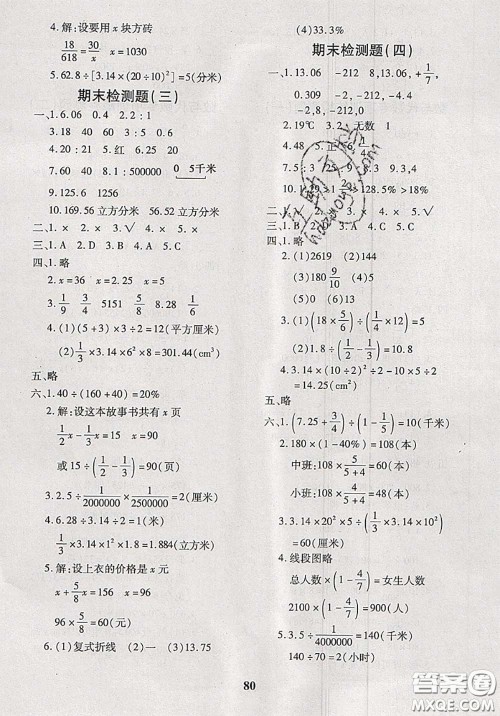 4.解:设要用x块方砖
18/618=30/x x=1030
5.62.8÷[3.14×(20÷10)²]=5(分米)
期末检测题(三)
一、1.6.06 0.4 2.2:1
3.18 40 60 80
4.20 5:4 5.红 6.25
7.60 40 8.1:500000 0 5千米
9.125.6 10.1256
10.169.56立方分米 56.52立方分米
二、1.× 2.× 3.√ 4.× 5.×
三、1.A 2.D 3.B 4.A 5.C
四、1.略
2.x=36 x=2.25 x=5
3.1/9 3/4 5151 8.28 3/5
4.(1)(5+3)×3÷2=12(平方厘米)
(2)1/3×3.14×6²×8=301.44(cm³)
五、略
六、1.40÷(160+40)=20%
2.解:设这本故事书共有x页
1/2x-1/3x=15 x=90
或15÷(1/2-1/3)=90(页)
3.2.5÷1/2000000×1/2500000=2(厘米)
4.6.28÷3.14÷2=1(米)
1/3×3.14×1²×1.8=1.884(立方米)
5.解:设上衣的价格是x元
x+5/8x=156 x=96
96×5/8=60(元)
6.(1)复式折线 (2)一 (3)13.75
(4)33.3%
期末检测题(四)
一、1.13.06 -212 8,13.06,+1/7
-2,8,-212,0
2.19℃ 3.2 无数 1
4.48 5.正
7.5
二、1.× 5.√
三、1.B
四、1.略
2.(1)2619 (2)144
(3)180 9/10 (4)6
(5)10
3.(1)(18×5/6)÷(1/4×12)=5
(2)2/9÷(1/2-1/3)=1 1/3
4.3.14×(10÷2)²÷2-10×5÷2
=14.25(cm²)
五、略
六、1.(7.25+3/4)÷(1-5/5)=10(千米)
2.180×(1-40%)=108(本)
中班:108×5/(5+4)=60(本)
小班:108×4/(5+4)=48(本)
=60(厘米)
4.线段图略
总人数×(1-4/7)=女生人数
2100×(1-4/7)=900(人)
5.3.5÷1/4000000=140(千米)
140÷70=2(小时)
80
答案圈
MXQE.COM